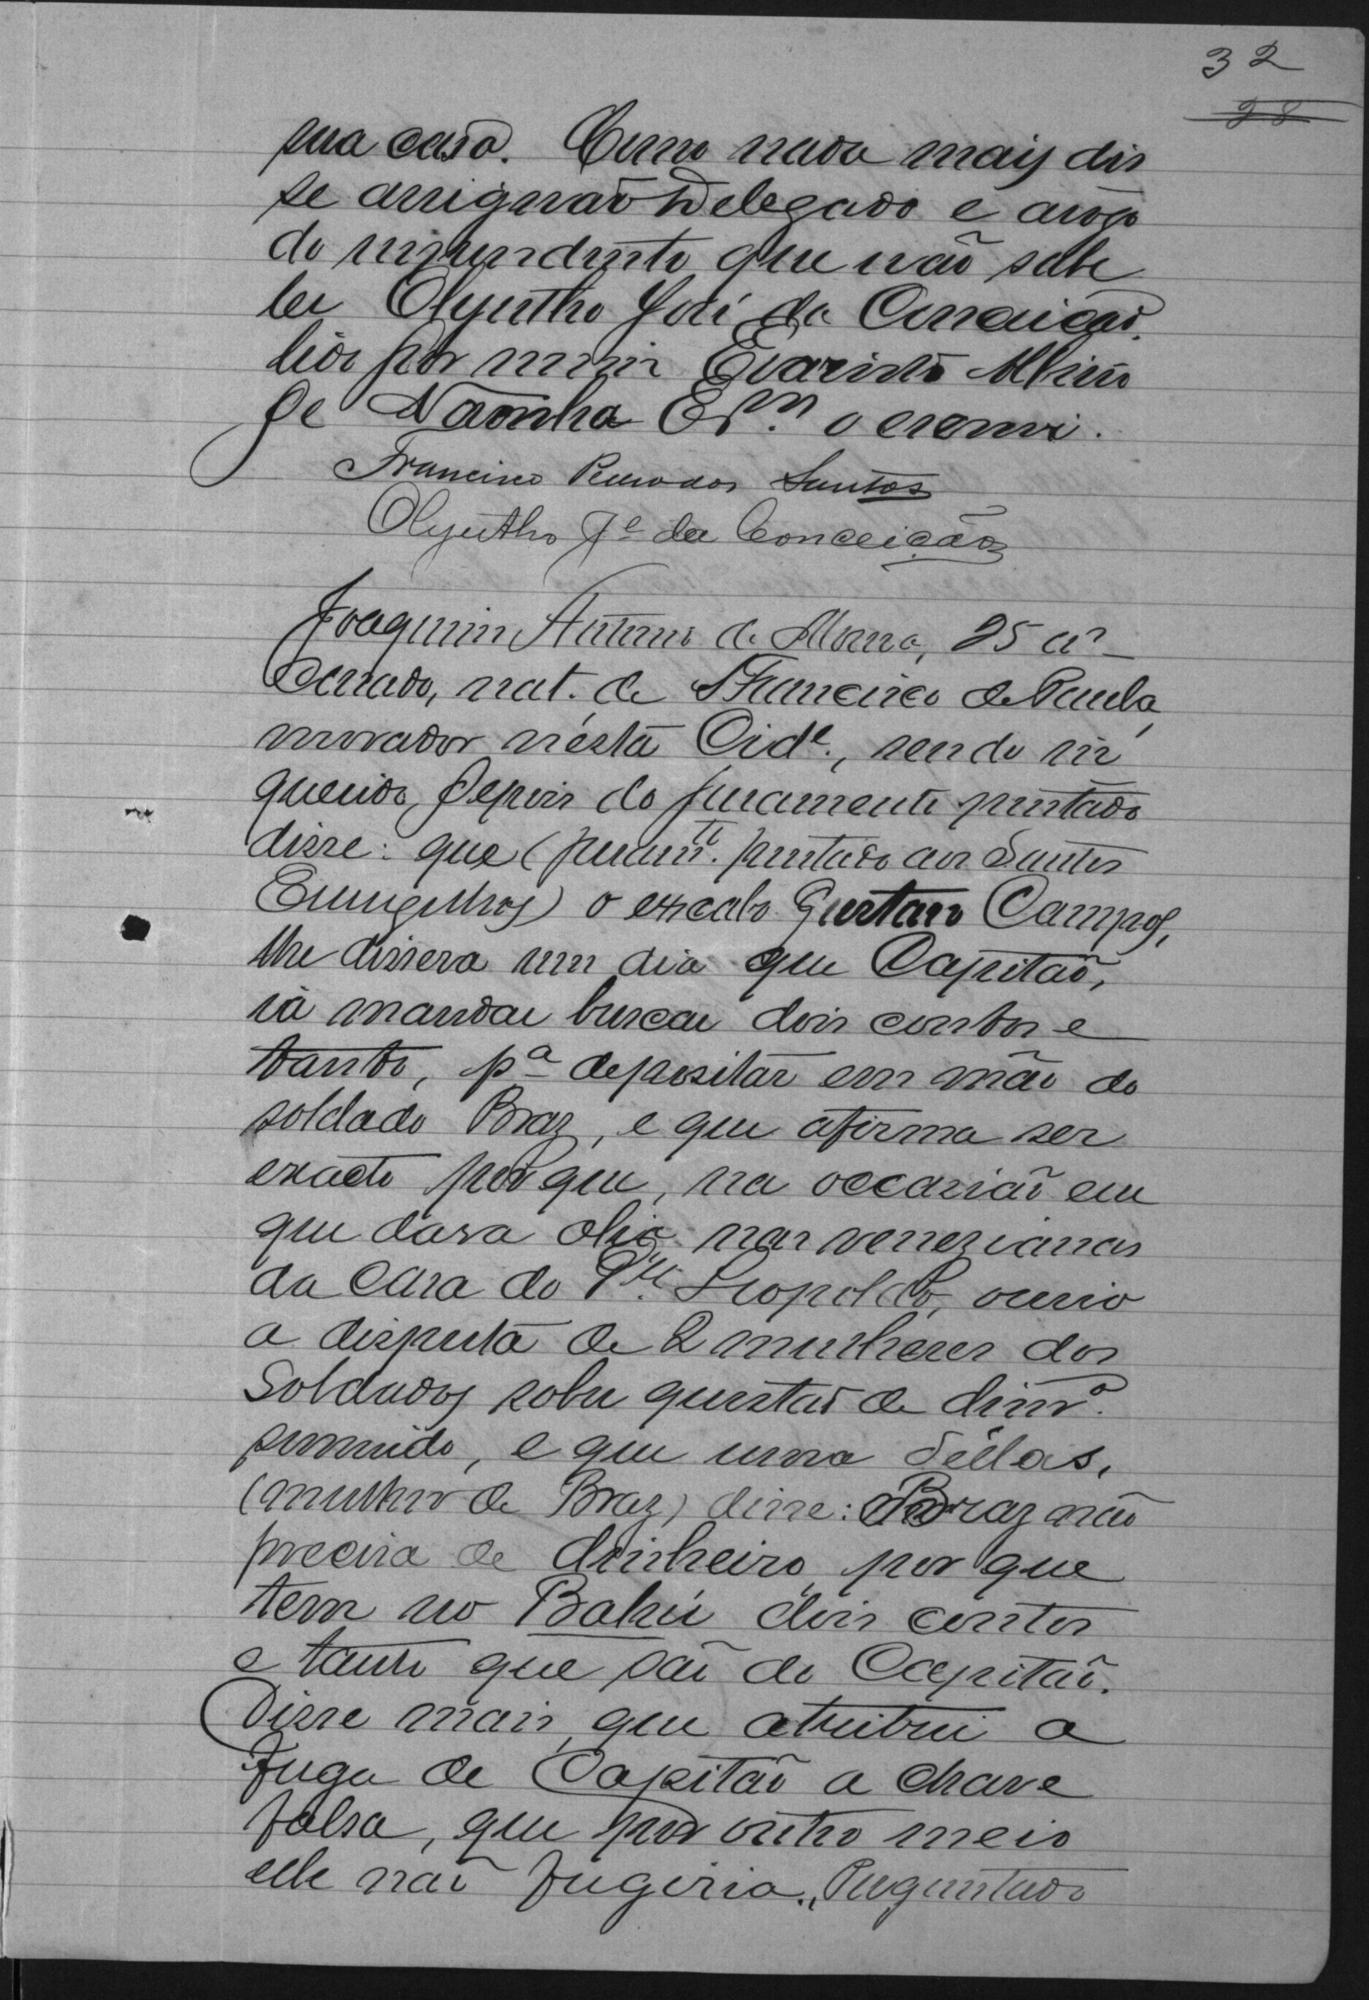 32
28
sua casa. Como nada mais dis
se assignão Delegado e arôgo
do respondente que não sabe
ler Olyntho José da Conceição.
lido por mim Evaristo
de Noronha Esm. o escrevi.
Francisco dos Santos
Olyntho Je da Conceição
Joaquim Antonio de Moura, 25 ans
Casado, nat. de S Francisco de Paula,
morador n'ésta Cide., sendo in
querido, depois do juramento prestado
disse: que (juramto. prestado aos Santos
Evangelhos) o excabo Gustavo Campos,
lhe dissera um dia que Capitão,
ia mandar buscar dois contos e
tanto, pa depositar em mão do
soldado Braz, e que afirma ser
exacto por que, na occasião em
que dava oleo nas venezianas
da casa do Leopoldo, ouvio
a disputa de 2 mulheres dos
Soldados sobre questão de dinro.
sumido, e que uma déllas,
(mulher de Braz) disse: Braz não
precisa de dinheiro por que
tem no Bahú dois contos
e tanto que são do Capitão.
Disse mais, que atribui a
fuga de Capitão a chave
falsa, que por outro meio
elle não fugiria., Perguntado